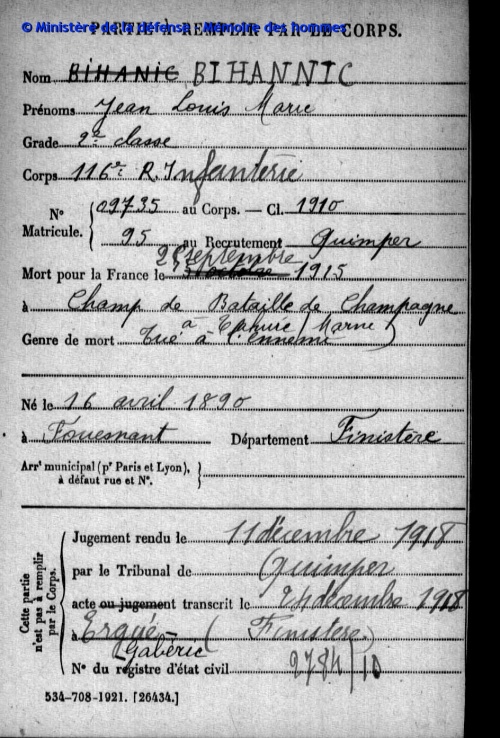 © Ministère de la défense - Mémoire des hommes
PARTIE À REMPLIR PAR LE CORPS.
Nom BIHANIC BIHANNIC
Prénoms Jean Louis Marie
Grade 2e classe
Corps 116e R. Infanterie
N° Matricule. { 09735 au Corps. — Cl. 1910
95 au Recrutement Quimper
Mort pour la France le 25 septembre 3 octobre 1915
à Champ de Bataille de Champagne
à Tahure (Marne)
Genre de mort Tué à l'ennemi
Né le 16 avril 1890
à Fouesnant Département Finistère
Arrt municipal (pr Paris et Lyon), à défaut rue et N°. }
Cette partie n'est pas à remplir par le Corps.
Jugement rendu le 11 décembre 1918
par le Tribunal de Quimper
acte ou jugement transcrit le 24 décembre 1918
à Ergué-Gabéric (Finistère)
N° du registre d'état civil 2784/10
534-708-1921. [26434.]